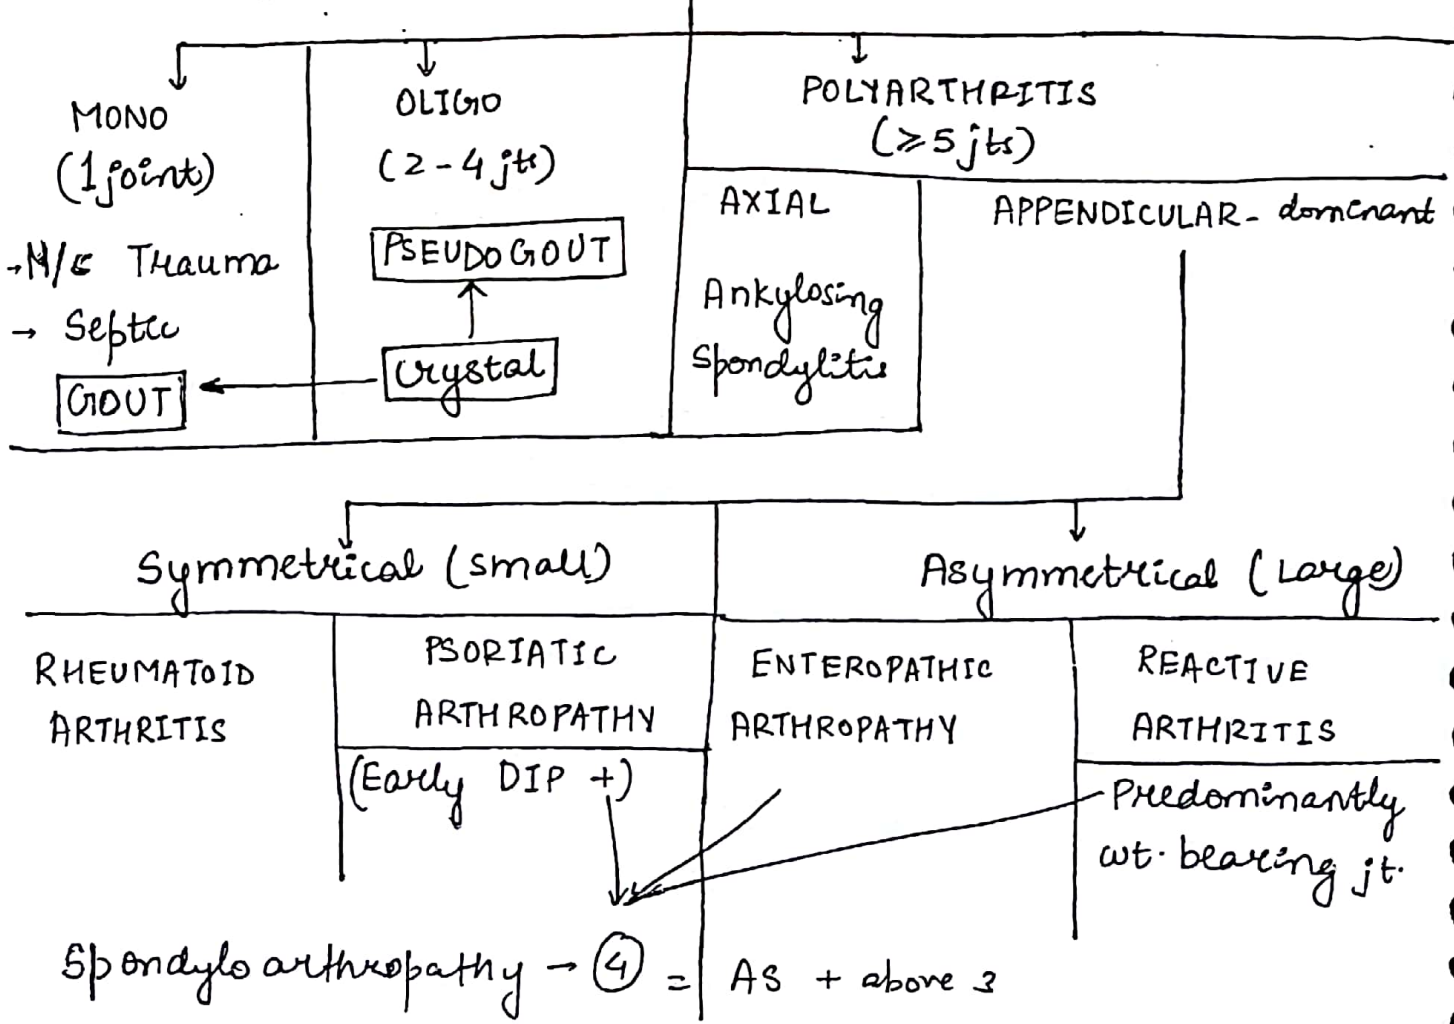 MONO
(1 joint)
→ M/c Trauma
→ Septic
GOUT
OLIGO
(2-4 jts)
PSEUDOGOUT
Crystal
POLYARTHRITIS
(≥5 jts)
AXIAL
Ankylosing
Spondylitis
APPENDICULAR- dominant
Symmetrical (small)
Asymmetrical (Large)
RHEUMATOID
ARTHRITIS
PSORIATIC
ARTHROPATHY
(Early DIP +)
ENTEROPATHIC
ARTHROPATHY
REACTIVE
ARTHRITIS
Predominantly
wt. bearing jt.
Spondylo arthropathy → 4 = AS + above 3